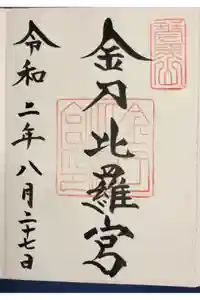 金刀比羅宮
令和二年八月二十七日